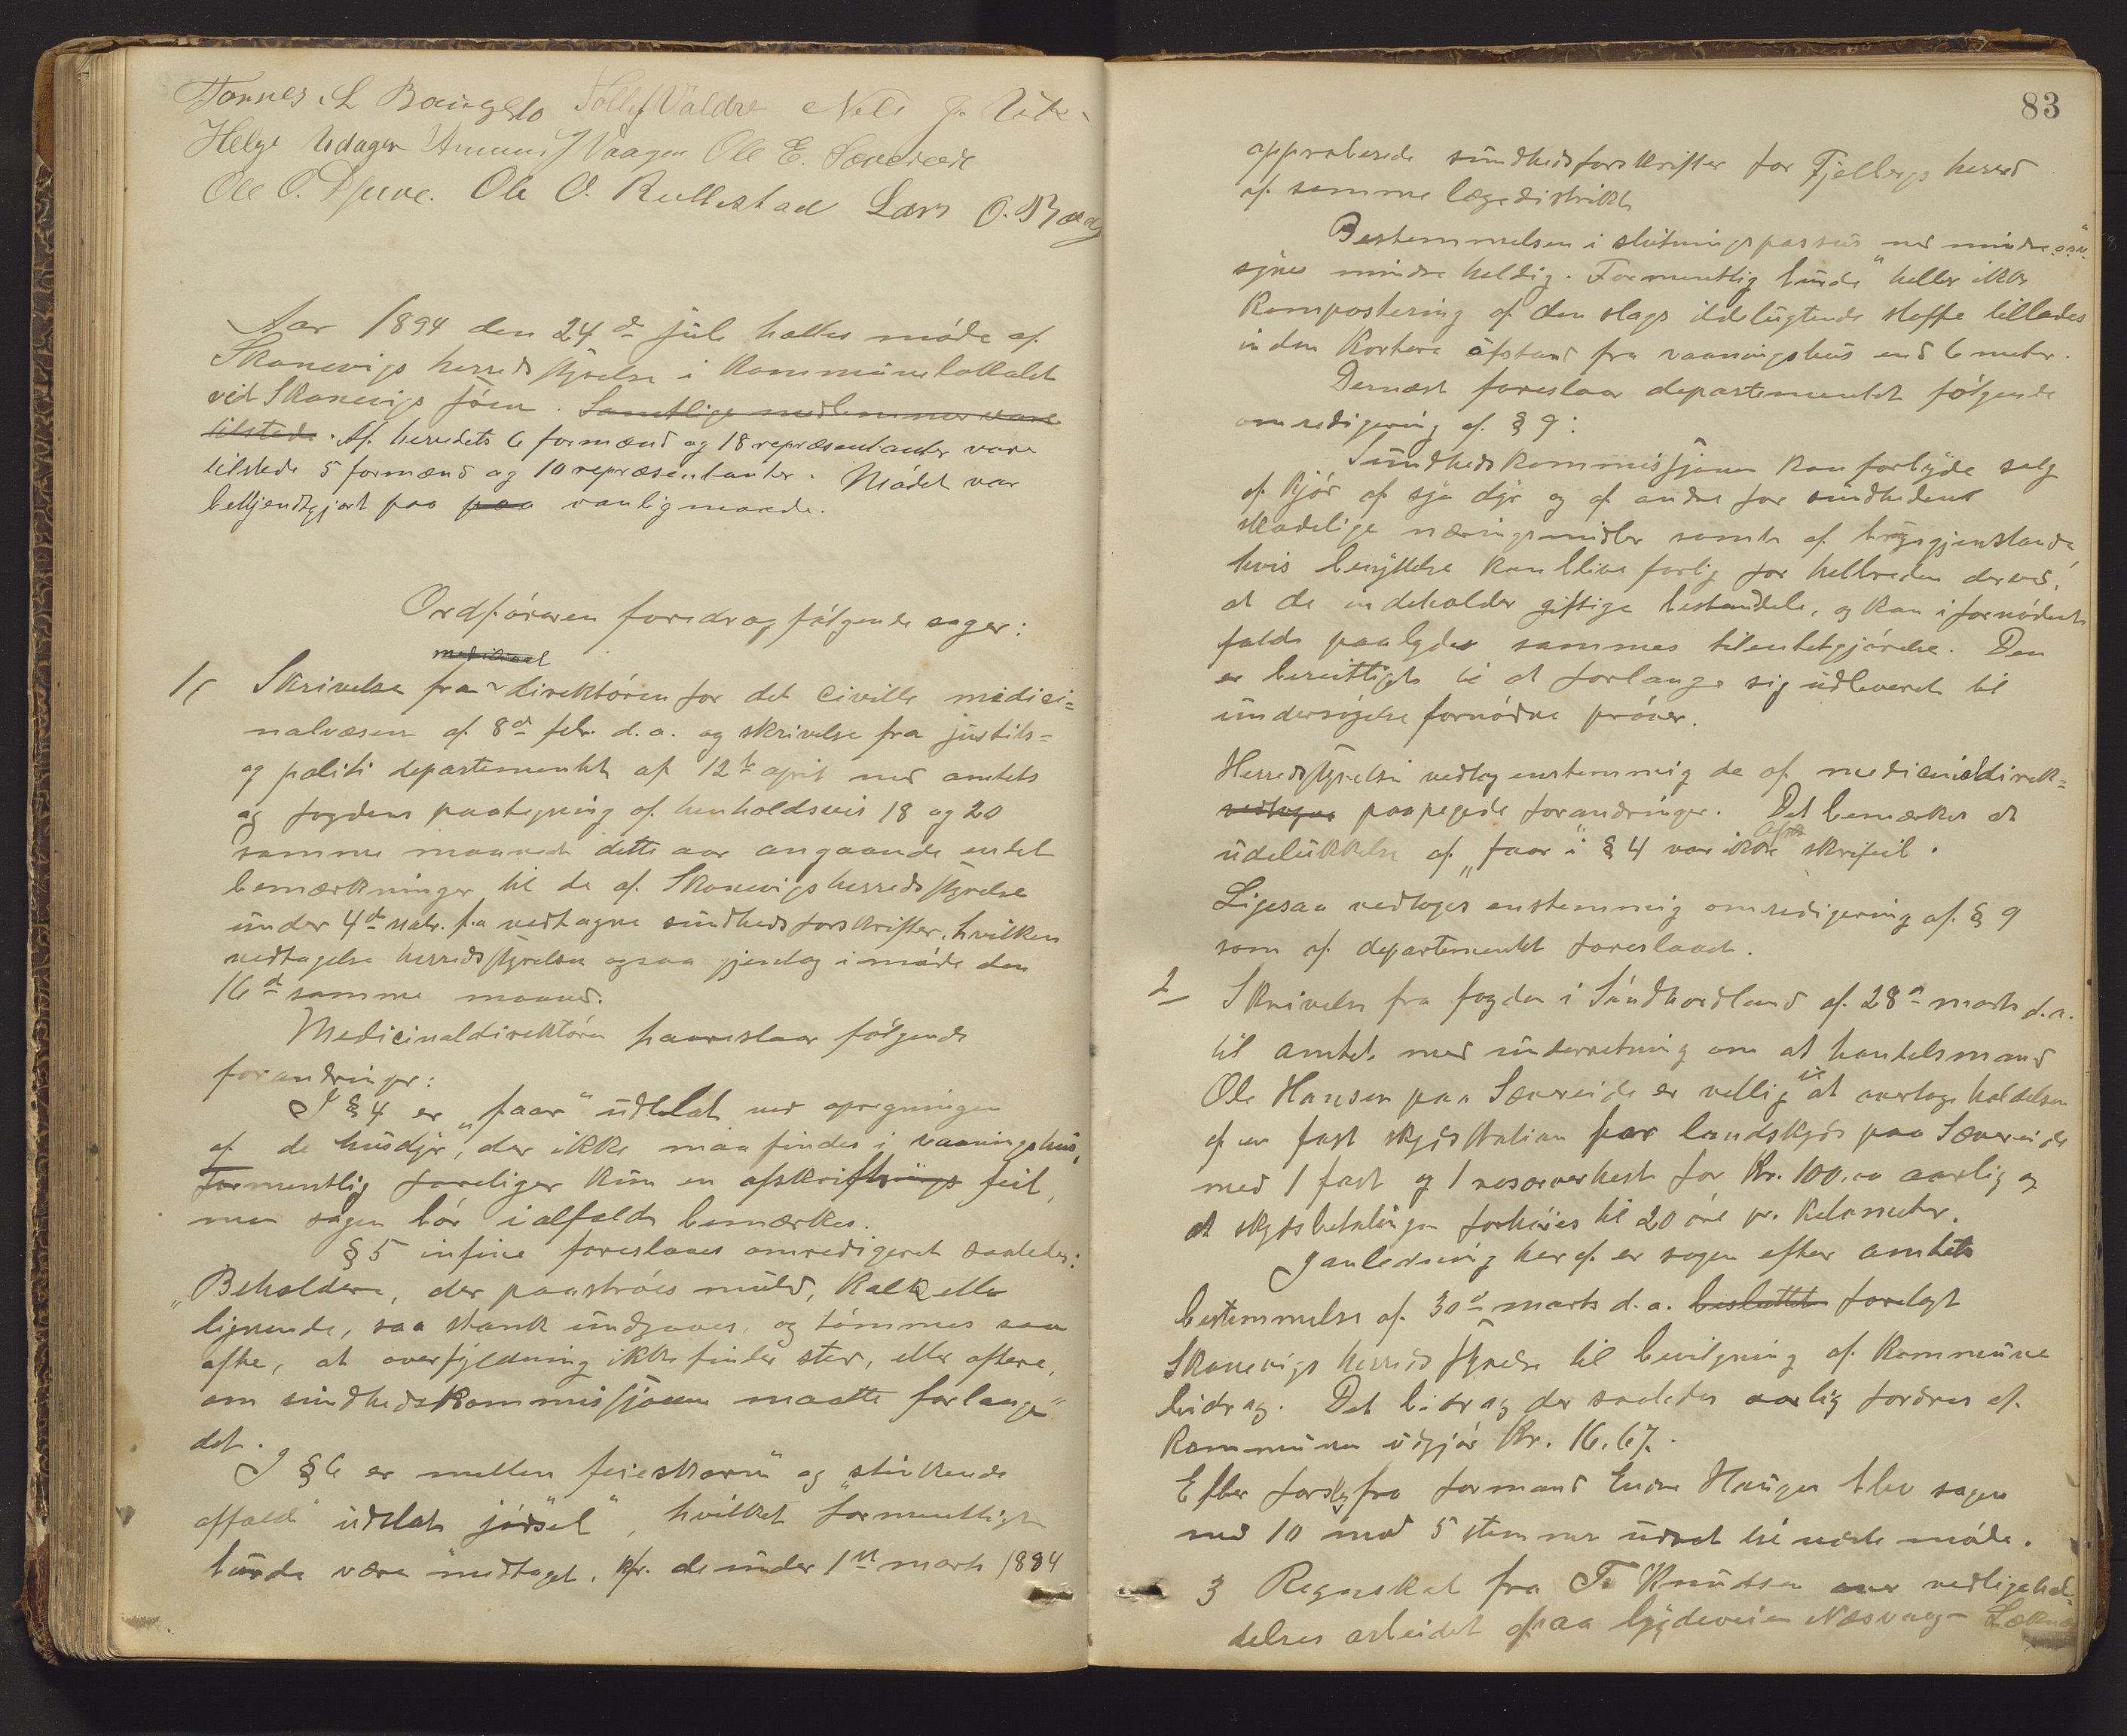 Tonnes L Baugsto Tollef Valdre Nels J. Vik
Helge Udager Amund Vaagen Ole E. Sævereide
Ole O. Djuve. Ole O. Rullestad Lars O. Borg
Aar 1894 den 24de juli holtes møde af
Skonevigs herredsstyrelse i kommunelokalet
ved Skonevigs søen. Samtlige medlemmer vare
tilstede. Af herredets 6 formænd og 18 repræsentanter vare
tilstede 5 formænd og 10 repræsentanter. Mødet var
bekjendtgjort paa paa vanlig maade.
Ordføreren foredrog følgende sager:
medicinal
1/ Skrivelse fra direktøren for det civille medici=
nalvæsen af 8de febr. d.a. og skrivelse fra justits=
og politi departementet af 12te april med amtets
og fogdens paategning af henholdsvis 18 og 20
samme maaned dette aar angaaende endel
bemærkninger til de af Skonevigs herredsstyrelse
under 4de nobr. f.a vedtagne sundhedsforskrifter, hvilken
vedtagelse herredsstyrelsen ogsaa gjentog i møde den
16de samme maaned.
Medicinaldirektøren foreslaar følgende
forandringer:
I § 4 er "faar" udeladt ved opregningen
af de husdyr, der ikke maa findes i vaaningshus,
formentlig foreliger kun en afskriftnings feil,
men sagen bør ialfald bemærkes.
§ 5 infine foreslaaes omredigeret saaledes:
"Beholdere, der paastrøes muld, kalk eller
lignende, saa stank undgaaes, og tømmes saa
ofte, at overfyldning ikke finder sted, eller oftere,
om sundhedskommissjonen maatte forlange"
det.
I § 6 er mellem feieskarn" og "stinkende
affald" udeladt "jødsel", hvilket formentligt
burde være medtaget, kfr. de under 1ste marts 1884
83
approberede sundhedsforskrifter for Fjelbergs herred
af samme lægedistrikt
Bestemmelsen i slutningspassus med mindre o.s.v.
synes mindre heldig. Formentlig burde heller ikke
kompostering af den slags ildelugtende stoffe tillades
inden kortere afstand fra vaaningshus end 6 meter.
Dernæst foreslaar departementet følgende
omredigering af § 9:
Sundhedskommissjonen kan forbyde salg
af kjød af syge dyr og af andre for sundheden
skadelige næringsmidler samt af brugsgjenstande,
hvis benyttelse kan blive farlig for helbreden derved,
at de indeholder giftige bestandele, og kan i fornødent
fald paabyde sammes tilintetgjørelse. Den
er berettiget til at forlange sig udleveret til
undersøgelse fornødne prøver.
Herredsstyrelsen vedtog enstemmig de af medicinaldirek=
vedtagne paapegede forandringer. Det bemærkes at
udelukkelse af "faar" i § 4 var ikke skrifeil.
Ligesaa vedtoges enstemmig omredigering af § 9
som af departementet foreslaaet.
2 Skrivelse fra fogden i Søndhordland af 28de marts d.a.
til amtet med underretning om at handelsmand
Ole Hansen paa Sævereide er villig til at overtage holdelsen
af en fast skydsstation for landskyds paa Sævereide
med 1 fast og 1 reserverhest for Kr. 100.00 aarlig og
at skydsbetalingen forhøies til 20 øre pr. kilometer.
I anledning her af er sagen efter amtets
bestemmelse af 30te marts d.a. besluttet forelagt
Skonevigs herredsstyrelse til bevilgning af kommune
bidrag. Det bidrag der saaledes aarlig fordres af
kommunen udgjør Kr. 16.67.
Efter forslag fra formand Endre Haugen blev sagen
med 10 mod 5 stemmer udsat til næste møde.
3 Regnskab fra T. Knutsen over vedligehol=
delses arbeidet paa bygdeveien Næsvaag-